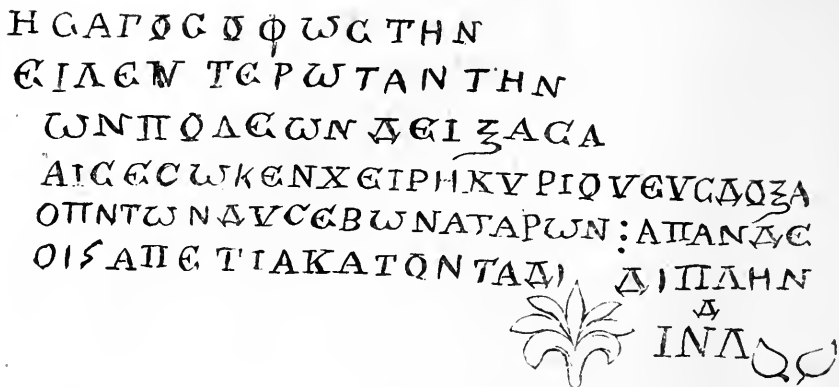 ΗϹΑΓΟϹΟΦωϹΤΗΝ
ΕΙΛΕΝ ΤΕΡωΤΑΝΤΗΝ
ωΝΠΟΛΕωΝ ΔΕΙΞΑϹΑ
ΑΙϹΕϹωΚΕΝΧΕΙΡΗΚΥΡΙΟΥΕΥϹΔΟΞΑ
ΟΠΝΤωΝΔΥϹΕΒωΝΑΤΑΡωΝ⁝ΑΠΑΝΔΕ
ΟΙϚΑΠΕΤΙΑΚΑΤΟΝΤΑΔΙ ΔΙΠΛΗΝ
Δ
ΙΝΛ